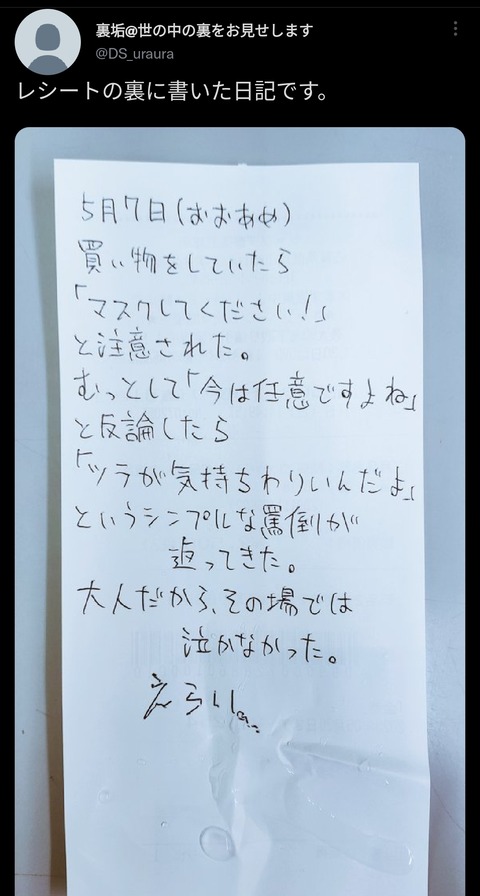 裏垢@世の中の裏をお見せします
@DS_uraura
レシートの裏に書いた日記です。
5月7日(おおあめ)
買い物をしていたら
「マスクしてください!」
と注意された。
むっとして「今は任意ですよね」
と反論したら
「ツラが気持ちわりいんだよ」
というシンプルな罵倒が
返ってきた。
大人だから、その場では
泣かなかった。
えらい。